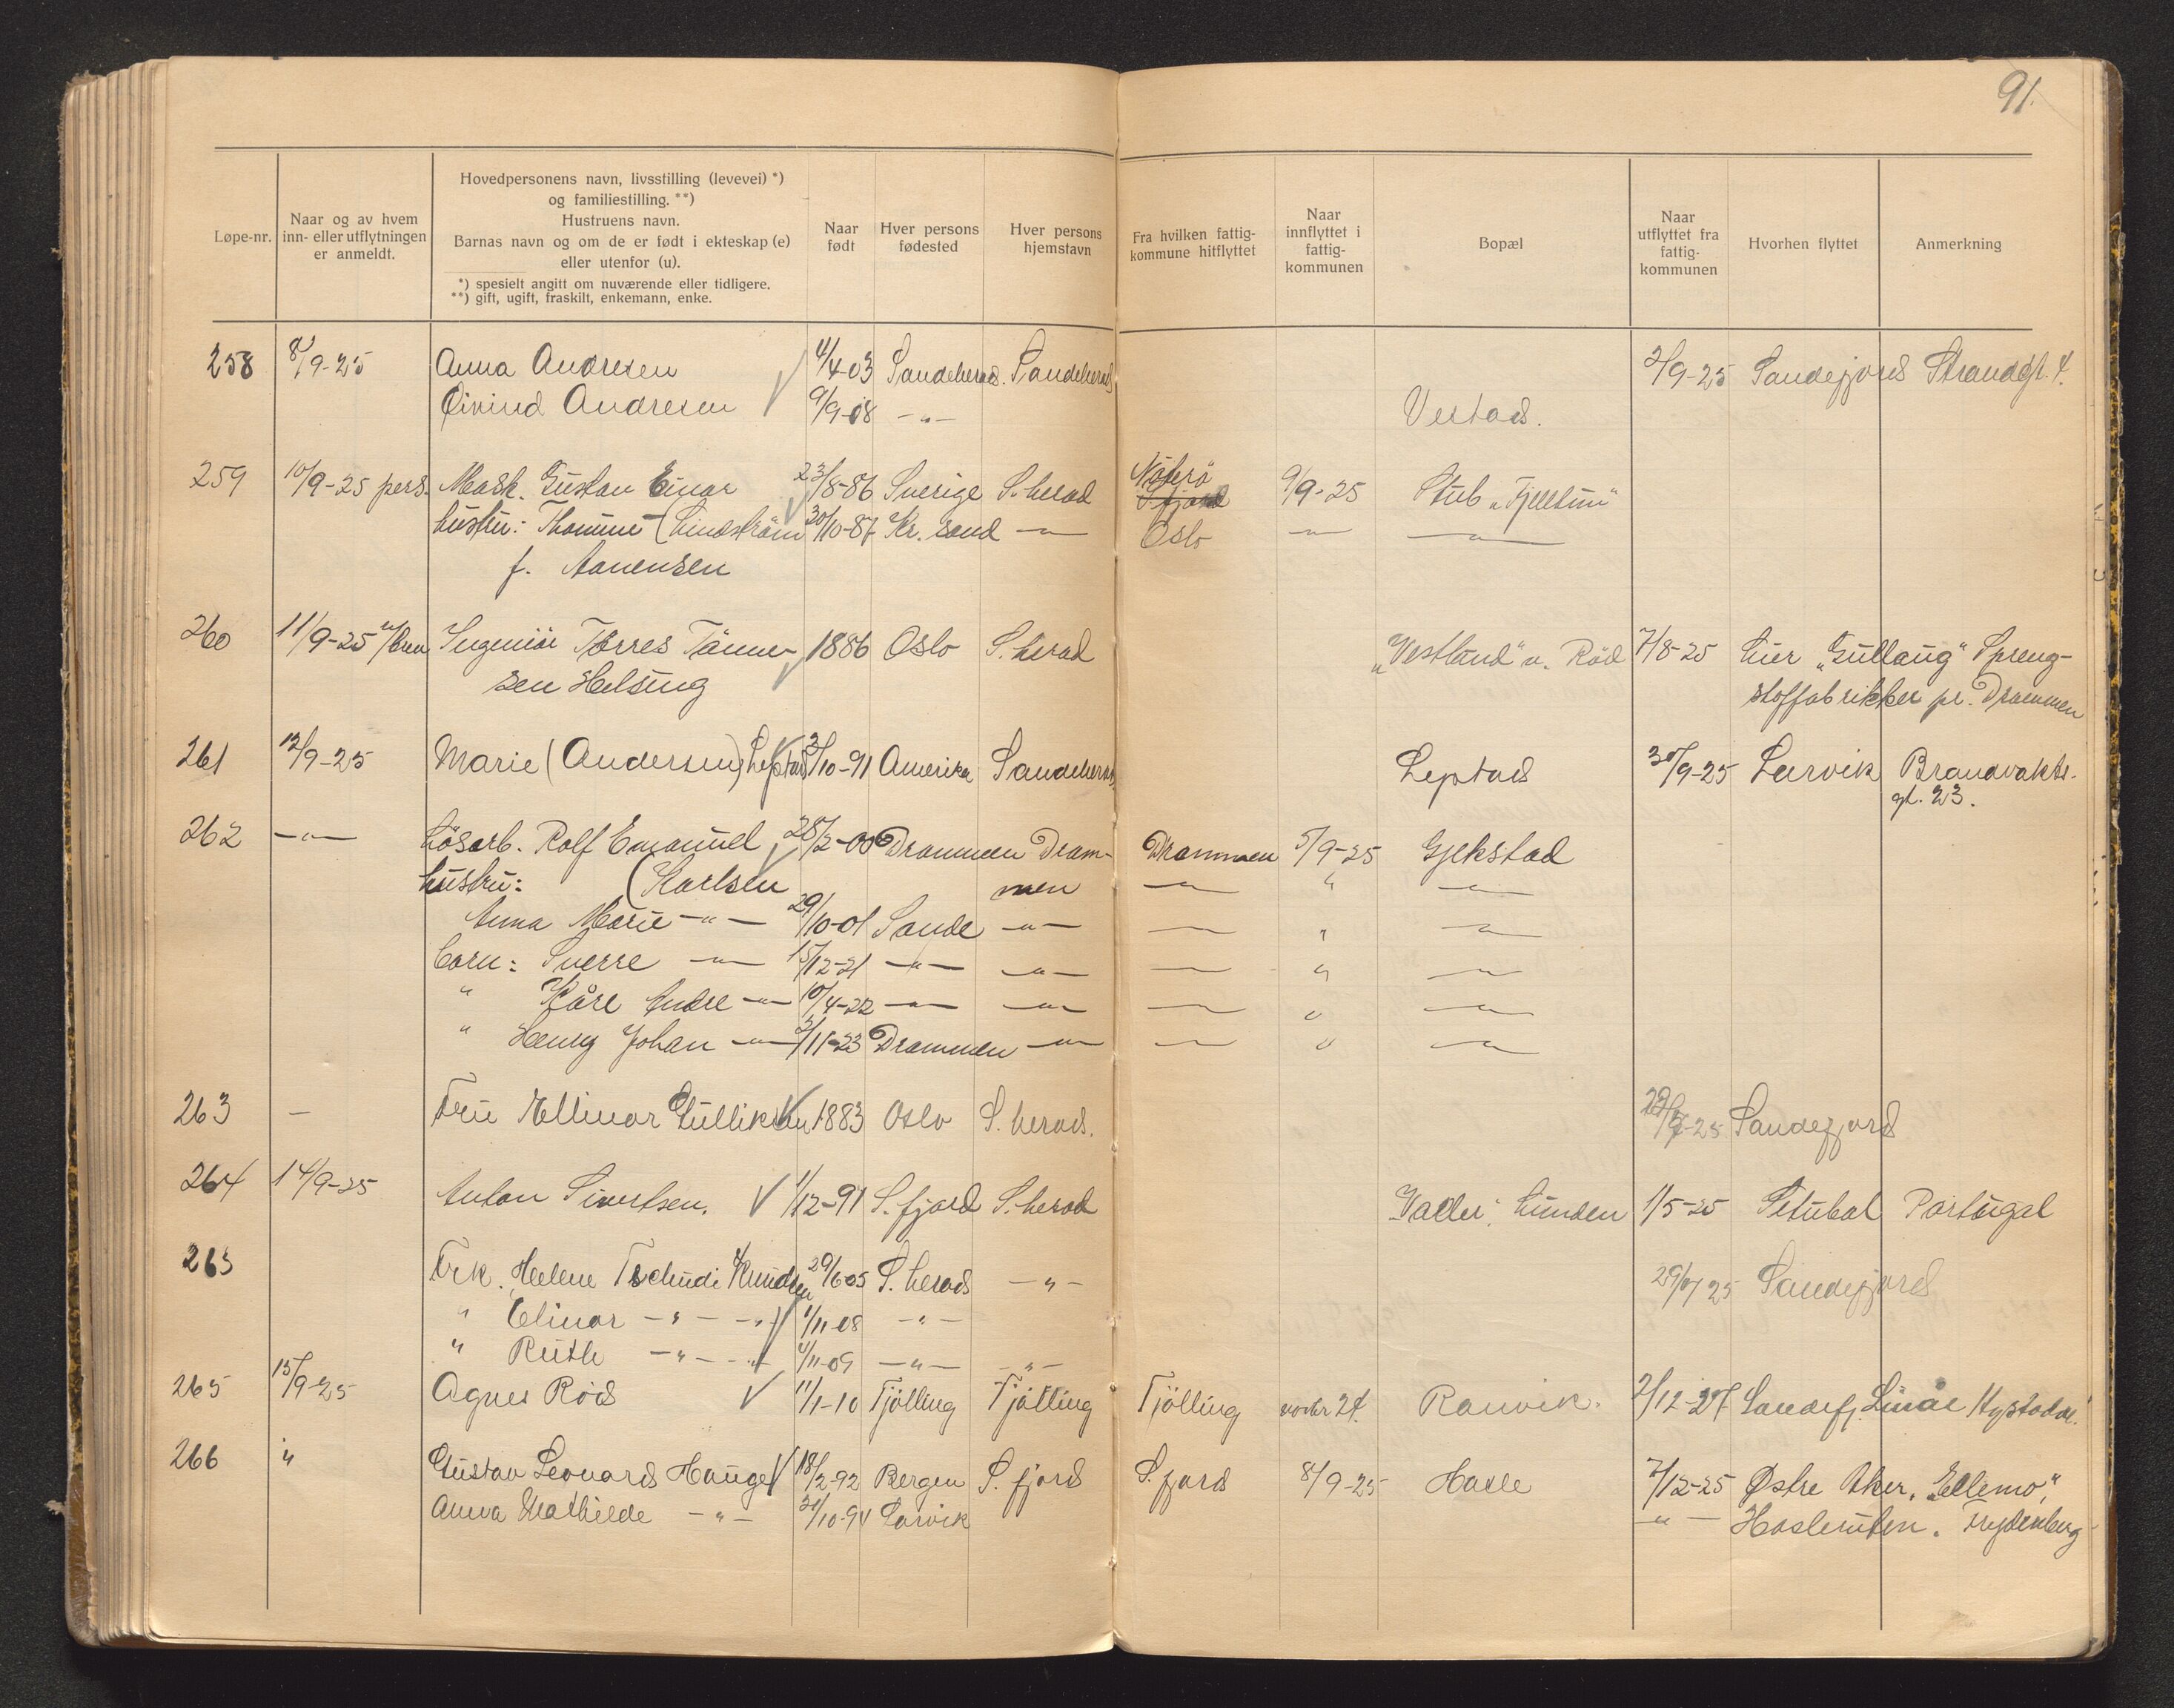 91.
Løpe-nr.
Naar og av hvem
inn- eller utflytningen
er anmeldt.
Hovedpersonens navn, livsstilling (levevei) *)
og familiestilling. **)
Hustruens navn.
Barnas navn og om de er født i ekteskap (e)
eller utenfor (u).
*) spesielt angitt om nuværende eller tidligere.
**) gift, ugift, fraskilt, enkemann, enke.
Naar
født
Hver persons
fødested
Hver persons
hjemstavn
Fra hvilken fattig-
kommune hitflyttet
Naar
innflyttet i
fattig-
kommunen
Bopæl
Naar
utflyttet fra
fattig-
kommunen
Hvorhen flyttet
Anmerkning
258 8/9-25 Anna Andresen 4/4-03 Sandeherad. Sandeherad 2/9-25 Sandefjord Strandgt. 4.
Øivind Andresen 9/9-08 -"- Vestad.
259 10/9-25 pers. Mask. Gustav Einar 23/8-86 Sverige S. herad Nøterø 9/9-25 Stub "Fjelltun"
S. fjord
hustru: Thomine (Lindstrøm 30/10-87 Kr. sand -"- Oslo -"- -"-
f. Aanensen
260 11/9-25 Ingeniør Tønnes- 1886 Oslo S. herad "Vestlund" v. Rød 7/8-25 Lier "Gullaug" Spreng-
sen Helsing stoffabrikker pr. Drammen
261 12/9-25 Marie (Andersen) Leptad 3/10-91 Amerika Sandeherad Leptad 30/9-25 Larvik Brandvakts-
gt. 23.
262 -"- Løsarb. Rolf Emanuel 28/2-00 Drammen Dram- Drammen 5/9-25 Gjekstad
hustru: (Karlsen men -"- " -"-
Anna Marie -"- 29/10-01 Sande -"- -"- " -"-
barn: Sverre -"- 15/12-21 -"- -"- -"- " -"-
" Kåre Andre -"- 10/4-22 -"- -"- -"- " -"-
" Henry Johan -"- 3/11-23 Drammen -"- -"- " -"-
263 - Fru Ellinor Gulliksen 1883 Oslo S. herad. -25 Sandefjord
264 14/9-25 Anton Sivertsen. 1/12-91 S. fjord S. herad Lunden 1/5-25 Setubal Portugal
265 Frk. Helene Tschudi Knudsen 29/6-05 S. herad -"- Sandefjord
" Elinor -"- -"- 1/11-08 -"-
" Ruth -"- -"- 4/11-09 -"- -"-
265 15/9-25 Agnes Rød 11/1-10 Tjølling Tjølling Tjølling 24. Ranvik. 2/12-27 Sandefj.
266 " Gustav Leonard Hauge 18/2-92 Bergen S. fjord S. fjord 8/9-25 Hasle 7/12-25 Østre Aker, "Ellemo",
Anna Mathilde -"- 20/10-94 Larvik -"- Hasleveien. Frydenberg